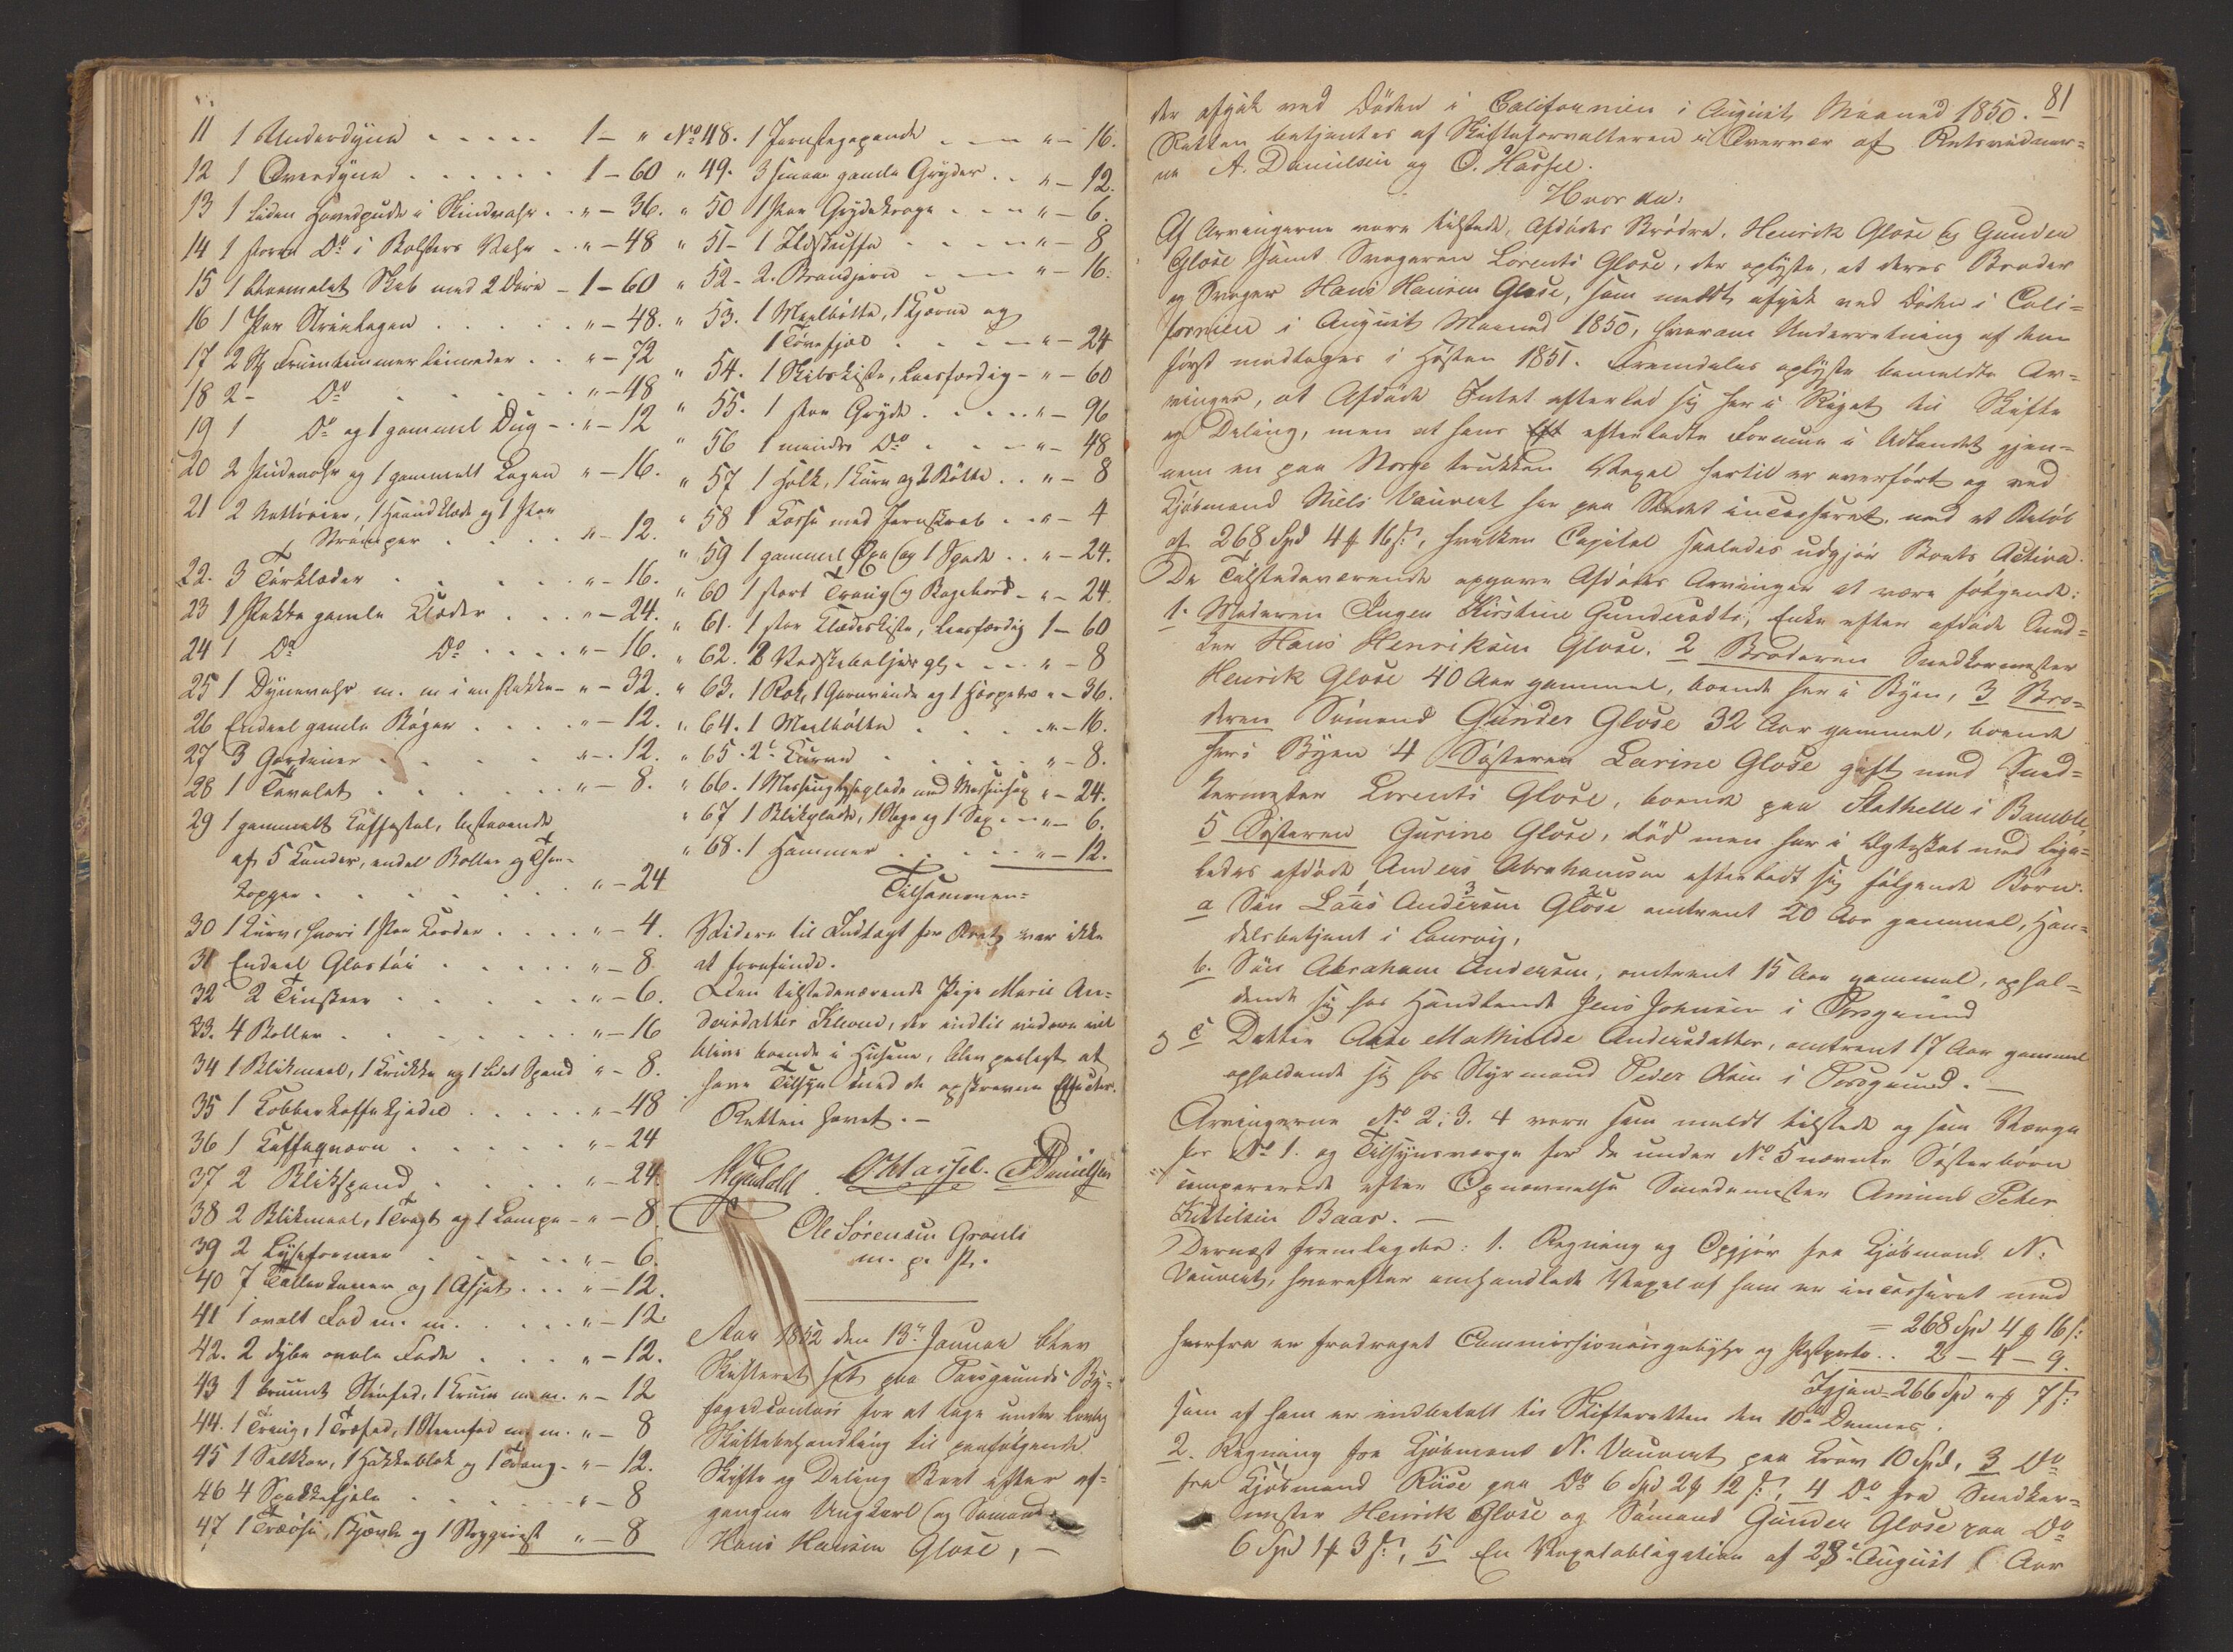 11 1 Underdyne . . . . . 1 – "
12 1 Overdyne . . . . . . 1 – 60
13 1 liden Hovedpude i Skindvahr . . " – 36.
14 1 større Do i Bolsters Vahr . . " – 48
15 1 blaamalet Skab med 2 Døre – 1 – 60
16 1 Par Strielagen . . . . . " – 48.
17 2 St Fruentimmer . . " – 72
18 2 – Do . . . . . " – 48
19 1 Do og 1 gammel Dug – " – 12
20 2 Pudevahr og 1 gammelt Lagen " – 16.
21 2 Nattrøier, 1 Haandklæde og 1 Par
Strømper . . . . " – 12.
22. 3 Tørklæder . . . . . " – 16.
23 1 Pakke gamle Klæder . . . " – 24.
24 1 Do Do . . . . " – 16.
25 1 Dynevahr m. m i en Pakke – " – 32.
26 Endeel gamle Bøger . . . . " – 12.
27 3 Gardiner . . . . . " – 12.
28 1 Tavelet . . . . . . " – 8.
29 1 gammelt Kaffestel, bestaaende
af 5 Kander, endel Boller og Thee-
kopper . . . . . . . " – 24
30 1 Kurv, hvori 1 Par Karder . . . . " – 4.
31 Endeel Glastøi . . . . . " – 8
32 2 Tinskeer . . . . . . " – 6.
33. 4 Boller . . . . . . . " – 16
34 1 Blikmaal, 1 Krukke og 1 lidet Spand " – 8.
35 1 Kobberkaffekjedel . . . . . " – 48
36 1 Kaffeqværn . . . . . " – 24
37 2 Blikspand . . . . . " – 24
38 2 Blikmaal, 1 Tragt og 1 Lampe – " – 8.
39 2 Lyseformer . . . . . " – 6.
40 7 Tallerkener og 1 Asjet . . . " – 12.
41 1 ovalt Fad m. m. . . . . " – 12.
42. 2 dybe ovale Fade . . . " – 12.
43 1 bruunt Steenfad, 1 Kruus m. m. " – 12
44. 1 Traug, 1 Træfad, 1 Steenfad m. m. " – 8
45 1 Saltkar, 1 Hakkeblok og 1 Traug. " – 12.
46 4 Spækkefjele . . . . . " – 8
47 1 Træøse, og 1 " – 8
No 48. 1 Jernstegepande . . . " – 16.
" 49. 3 smaae gamle Gryder . . " – 12.
" 50 1 Par Grydekroge . . . " – 6.
" 51 – 1 Ildskuffe . . . . " – 8
" 52 – 2. Brandjern . . . . " – 16.
" 53. 1 Meelbøtte, 1 Kjerne og
1 . . . . " – 24
" 54. 1 Skibskiste, laasfærdig – " – 60
" 55. 1 stor Gryde . . . . . " – 96
" 56 1 mindre Do . . . . " – 48
" 57 1 Holk, 1 Kurv og 2 Bøtte . . " – 8
" 58 1 Kasse med Jernskrab . . " – 4
" 59 1 gammel Øxe og 1 Spade . . " – 24.
" 60 1 stort Traug og Bagebord – " – 24.
" 61. 1 stor Klædeskiste, laasfærdig 1 – 60
" 62. 2 Vadskebaljer gl. . . . " – 8
" 63. 1 Rok, 1 Garnvinde og 1 " – 36.
" 64. 1 Meelbøtte . . . . " – 16.
" 65. 2 Kurve . . . . . " – 8.
" 66. 1 Messinglyseplade med Messingsax " – 24.
" 67 1 Blikplade, 1 og 1 Sax . . " – 6.
" 68. 1 Hammer . . . . . " – 12.
Tilsammen =
Videre til Indtægt for Boet var ikke
at forefinde.
Den tilstedeværende Pige Marie An-
dersdatter Kleven, der indtil videre vil
blive boende i Husene, blev paalagt at
have Tilsyn med de opskrevne Effecter.
Retten hævet. –
OHassel. ADanielsen
Ole Sørensen Grønli
m. p. P.
Aar 1852 den 13de Januar blev
Skifteret sat paa Porsgrunds By-
fogedcontoir for at tage under lovlig
Skiftebehandling til paafølgende
Skifte og Deling Boet efter af-
gangne Ungkarl og Sømand
Hans Hansen Glose, –
81
der afgik ved Døden i Californien i August Maaned 1850. –
Retten betjentes af Skifteforvalteren i Overvær af Retsvidner-
ne A. Danielsen og O. Hassel.
Hvor da:
Af Arvingerne vare tilstede, Afdødes Brødre, Henrik Glose og Gunder
Glose samt Svogeren Lorents Glose, der oplyste, at deres Broder
og Svoger Hans Hansen Glose, som meldt afgik ved Døden i Cali-
fornien i August Maaned 1850, hvorom Underretning af dem
først modtoges i Høsten 1851. Fremdeles oplyste bemeldte Ar-
vinger, at Afdøde Intet efterlod sig her i Riget til Skifte
og Deling, men at hans Eft efterladte Formue i Udlandet gjen-
nem en paa Norge trukken Vexel hertil er overført og ved
Kjøbmand Niels Vauvert her paa Stedet incasseret med et Beløb
af 268 Spd 4 ℔ 16 s:, hvilken Capital saaledes udgjør Boets Activa.
De Tilstedeværende opgave Afdødes Arvinger at være følgende:
1. Moderen Inger Kirstine Gundersdtr, Enke efter afdøde Sned-
ker Hans Henriksen Glose, 2 Broderen Snedkermester
Henrik Glose 40 Aar gammel, boende her i Byen, 3 Bro-
deren Sømand Gunder Glose 32 Aar gammel, boende
her i Byen 4 Søsteren Larine Glose gift med Sned-
kermester Lorents Glose, boende paa Stathelle i Bamble,
5 Søsteren Gurine Glose, død men har i Ægteskab med lige-
ledes afdøde Anders Abrahamsen efterladt sig følgende Børn.
a Søn Laus Andersen Glose omtrent 20 Aar gammel, Han-
delsbetjent i Laurvig,
b. Søn Abraham Andersen, omtrent 15 Aar gammel, ophol-
dende sig hos Handlende Jens Johnsen i Porsgrund
og c Datter Mathilde Andersdatter, omtrent 17 Aar gammel
opholdende sig hos Styrmand Peder i Porsgrund. –
Arvingerne No 2: 3. 4 vare som meldt tilstede og som Værge
for No 1. og Tilsynsværge for de under No 5 nævnte Søsterbørn
comparerede efter Opnævnelse Smedemester Amund Peter
Kittilsen Baas. –
Dernæst fremlagdes: 1. Regning og Opgjør fra Kjøbmand N.
Vauvert, hvorefter omhandlede Vexel af ham er incasseret med
= 268 Spd 4 ℔ 16 s:
hvorfra er fradraget Commissionsgebyhr og Postporto . . 2 – 4 – 9.
Igjen = 266 Spd " ℔ 7 s:
som af ham er indbetalt til Skifteretten den 10de Dennes.
2. Regning fra Kjøbmand N. Vauvert paa Krav 10 Spd, 3 Do
fra Kjøbmand Riise paa Do 6 Spd 2 ℔ 12 s:, 4 Do fra Snedker-
mester Henrik Glose og Sømand Gunder Glose paa Do
6 Spd 1 ℔ 3 s:, 5 En Vexelobligation af 28de August f. Aar